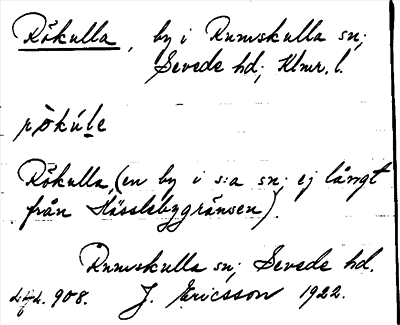 Rökulla, by i Rumskulla sn;
Sevede hd; Klmr. l.
rökúle
Rökulla, (en by i s:a sn; ej långt
från Hässlebygränsen).
Rumskulla sn; Sevede hd.
908. J. Ericsson 1922.